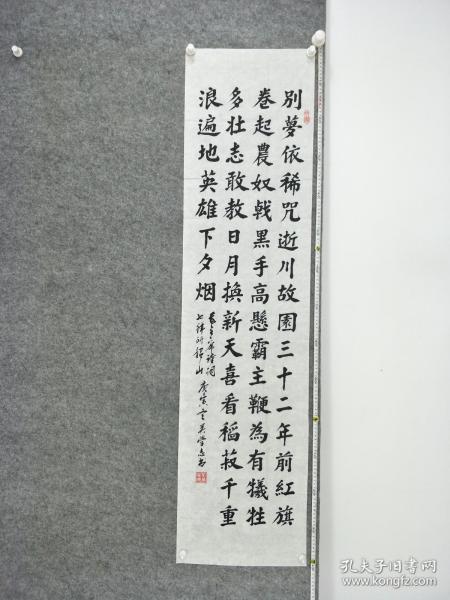 別夢依稀咒逝川故園三十二年前紅旗
卷起農奴戟黑手高懸霸主鞭為有犧牲
多壯志敢教日月換新天喜看稻菽千重
浪遍地英雄下夕烟
毛主席詩詞
七律到韶山 庚寅
孔夫子旧书网
www.kongfz.com